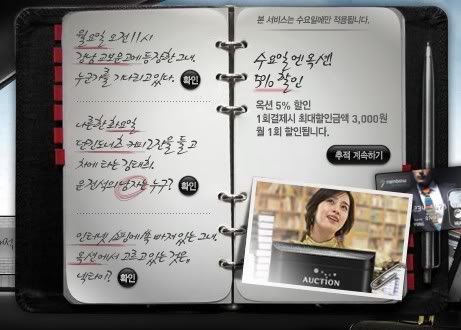 월요일 오전 11시
강남 교보문고에 등장한 그녀.
누군가를 기다리고 있다. 확인
나른한 화요일
던킨도너츠 커피 2잔을 들고
차에 타는 김태희.
운전석의 남자는 누구? 확인
인터넷 쇼핑에 쏙 빠져있는 그녀.
옥션에서 고르고 있는 것은,
넥타이? 확인
본 서비스는 수요일에만 적용됩니다.
수요일엔 옥션
5% 할인
옥션 5% 할인
1회결제시 최대할인금액 3,000원
월 1회 할인됩니다.
추적 계속하기
AUCTION